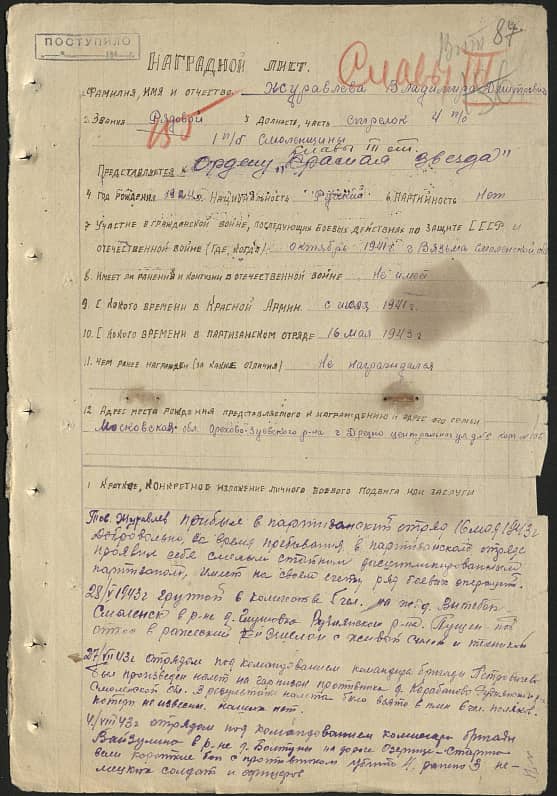 ПОСТУПИЛО
87
НАГРАДНОЙ ЛИСТ.
Славы III
1. ФАМИЛИЯ, ИМЯ И ОТЧЕСТВО Журавлева Владимира Дмитриевич
2. Звания Рядовой 3 Должность, часть стрелок 4 п/о
1 п/б Смоленщины
Славы III ст.
Представляется к ордену "Красная звезда"
4 год рождения 1924 г. Национальность Русский 6 партийность Нет
7 Участие в гражданской войне, последующих боевых действиях по защите СССР и
отечественной войне (где, когда) октябрь 1941 г Вязьма Смоленской
8. Имеет ли ранения и контузии в отечественной войне Не имел
9. С какого времени в Красной Армии с 1941 г.
10. С какого времени в партизанском отряде 16 мая 1943 г
11. Чем ранее награжден (за какие отличия) Не награждался
12. Адрес места рождения представляемого к награждению и адрес его семьи
Московская обл. Орехово-Зуевского р-на г Дрезно центральная ул д № 5
1 Краткое, конкретное изложение личного боевого подвига или заслуги
Тов. Журавлев прибыл в партизанский отряд 16 мая 1943 г
добровольно, за время пребывания в партизанском отряде
проявил себя смелым стойким дисциплинированным
партизаном, имеет на своем счету ряд боевых операций.
28/ 1943 г группой в количестве 6 чел. на ж.д. Витебск
Смоленск в р-не д. Глушовка Руднянского р-на. Пущен под
откос вражеский эшелон с живой силой и техникой
27/ 43 г отрядом под командованием командира бригады
был произведен налет на гарнизон противника д. Карабаново
Смоленской обл. В результате налета было взято в плен 6 чел. поляков.
потери не известны. наших нет.
4/VIII 43 г отрядом под командованием комиссара бригады
в р-не д. на дороге
вели короткие бои с противником убито 4, ранено 3 не-
мецких солдат и офицеров